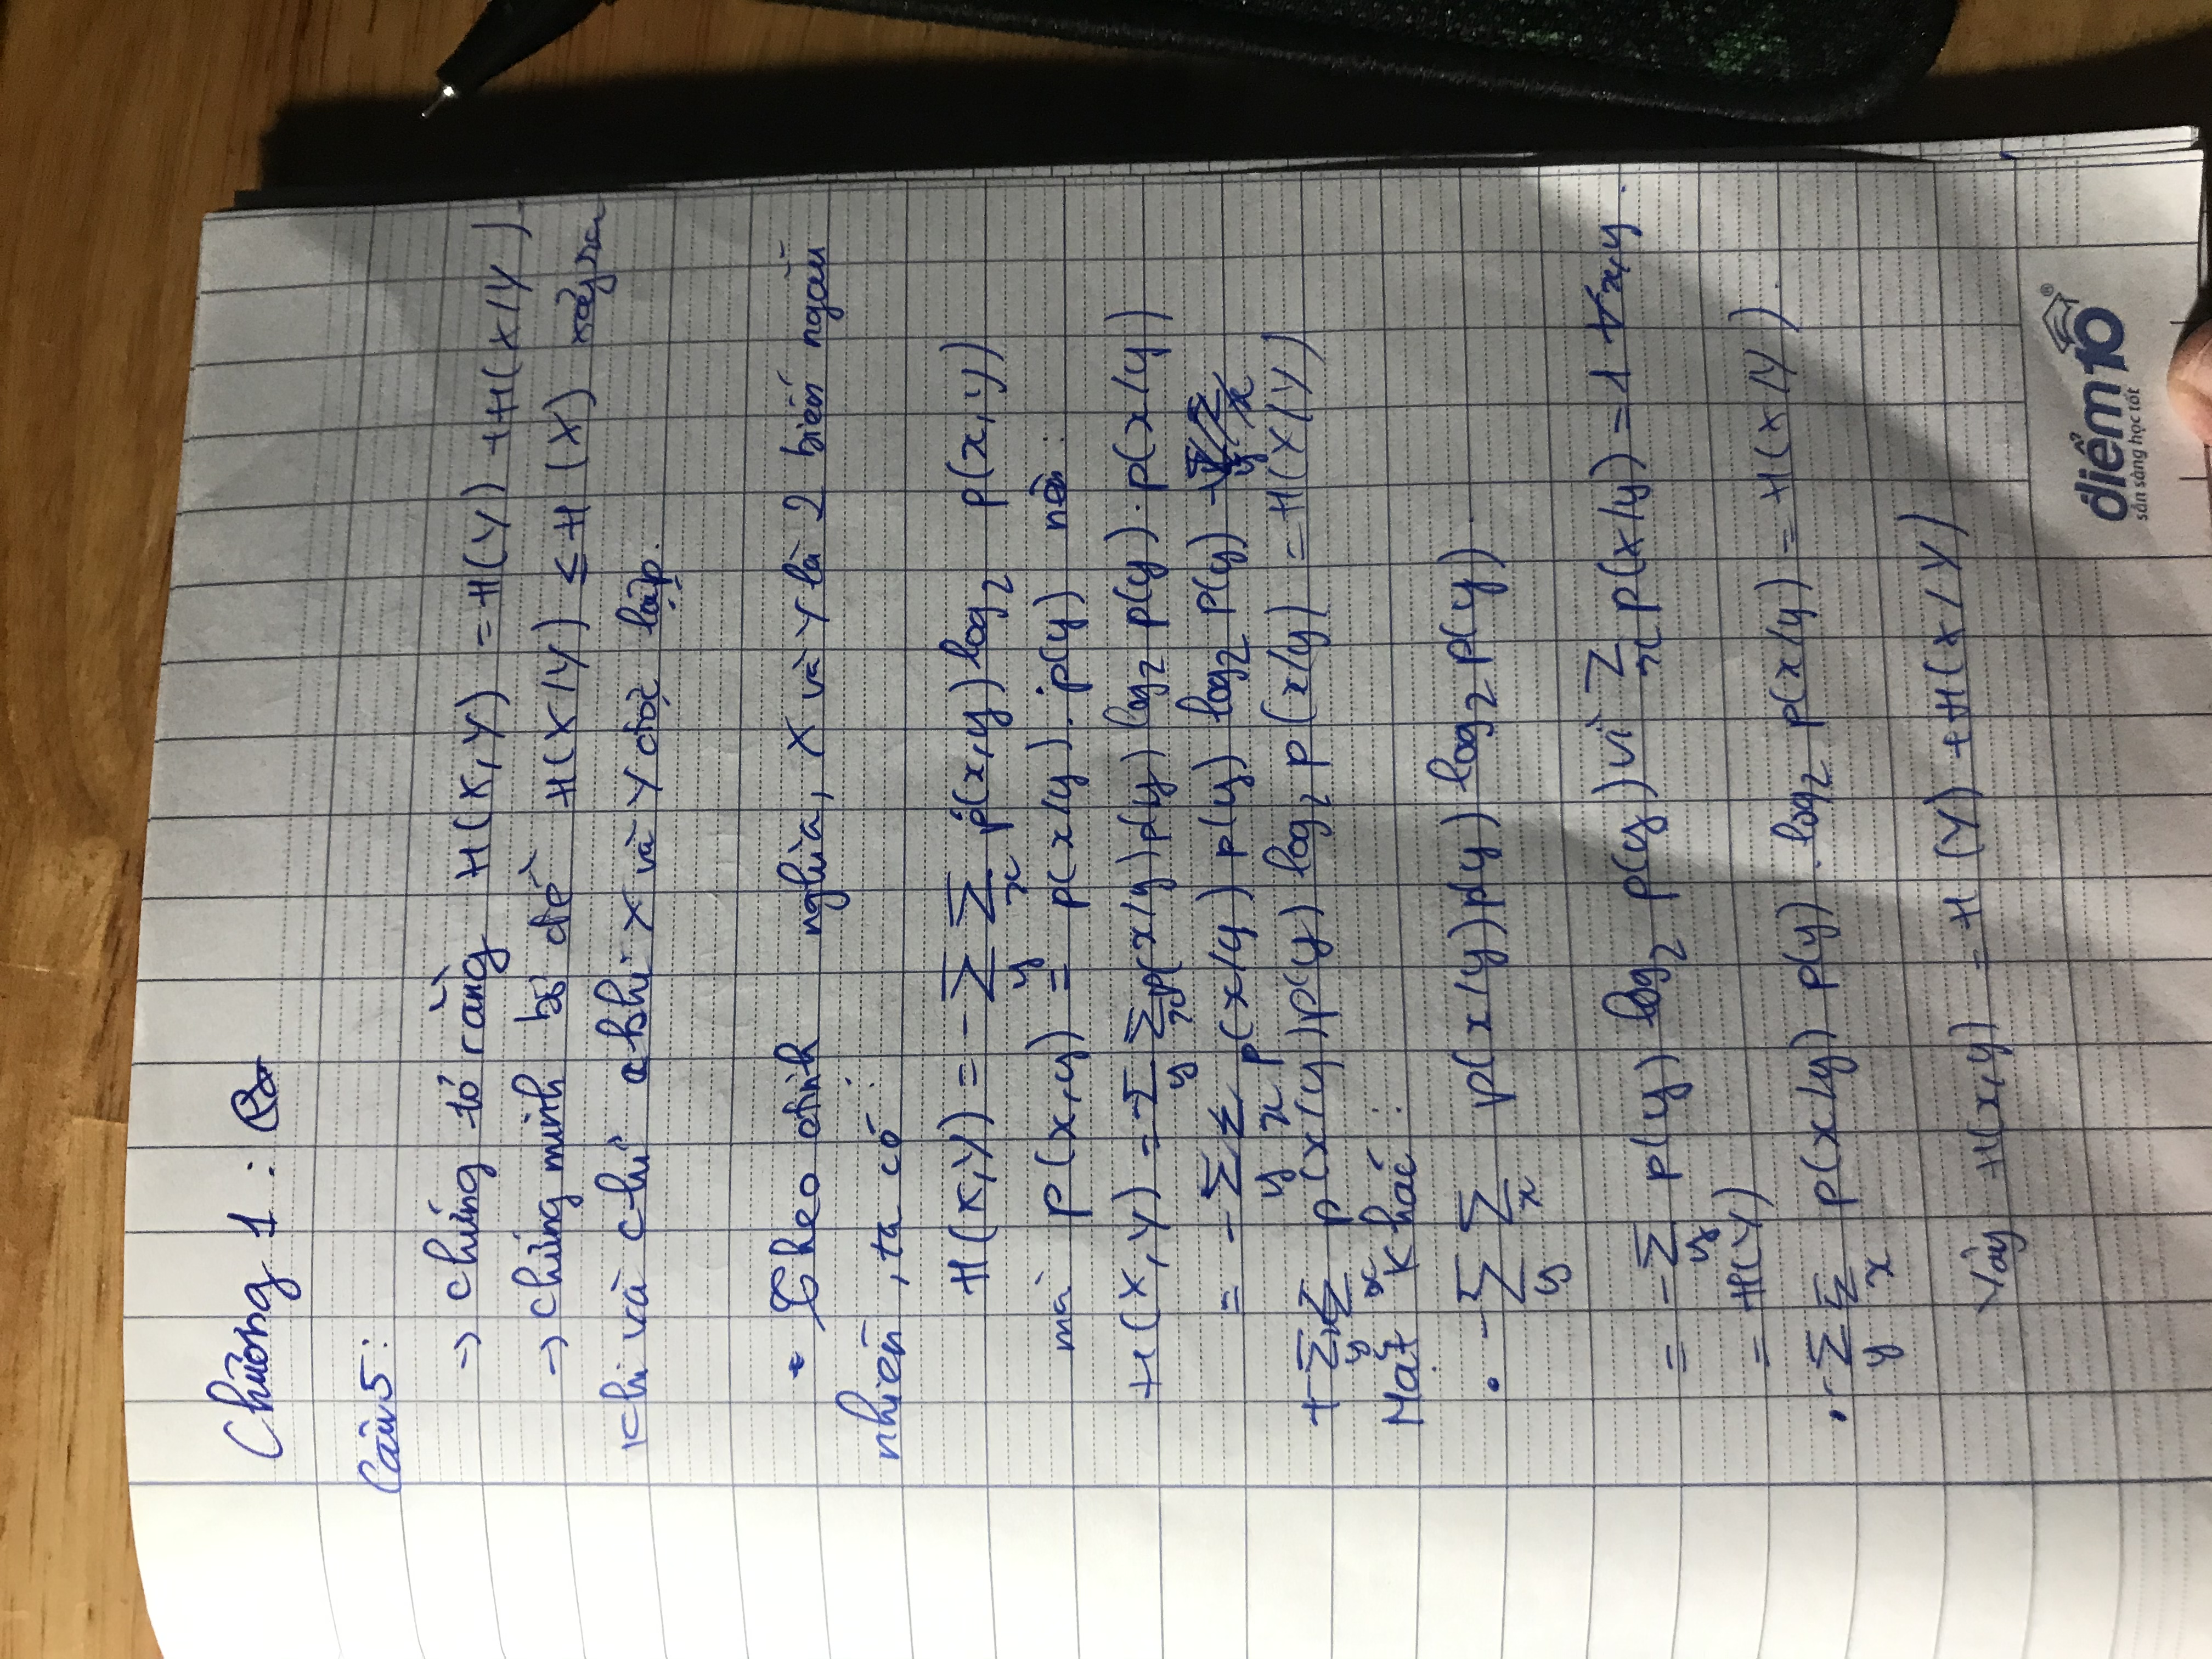 Chương 1 :
Câu 5 :
→ chứng tỏ rằng H(X,Y) = H(Y) + H(X/Y).
→ chứng minh bổ đề H(X/Y) ≤ H(X) xảy ra
khi và chỉ khi X và Y độc lập.
Theo định nghĩa, X và Y là 2 biến ngẫu
nhiên, ta có :
H(X,Y) = -∑_y ∑_x p(x,y) log₂ p(x,y)
mà p(x,y) = p(x/y) . p(y) nên :
H(X,Y) = -∑_y ∑_x p(x/y) p(y) log₂ p(y) . p(x/y)
= -∑_y ∑_x p(x/y) p(y) log₂ p(y)
+ ∑_y ∑_x p(x/y) p(y) log₂ p(x/y) = H(X/Y)
Mặt khác :
• -∑_y ∑_x p(x/y) p(y) log₂ p(y).
= -∑_y p(y) log₂ p(y) vì ∑_x p(x/y) = 1 ∀x,y.
= H(Y)
• -∑_y ∑_x p(x/y) p(y) . log₂ p(x/y) = H(X/Y).
Vậy H(x,y) = H(Y) + H(X/Y)
điểm10®
sẵn sàng học tốt